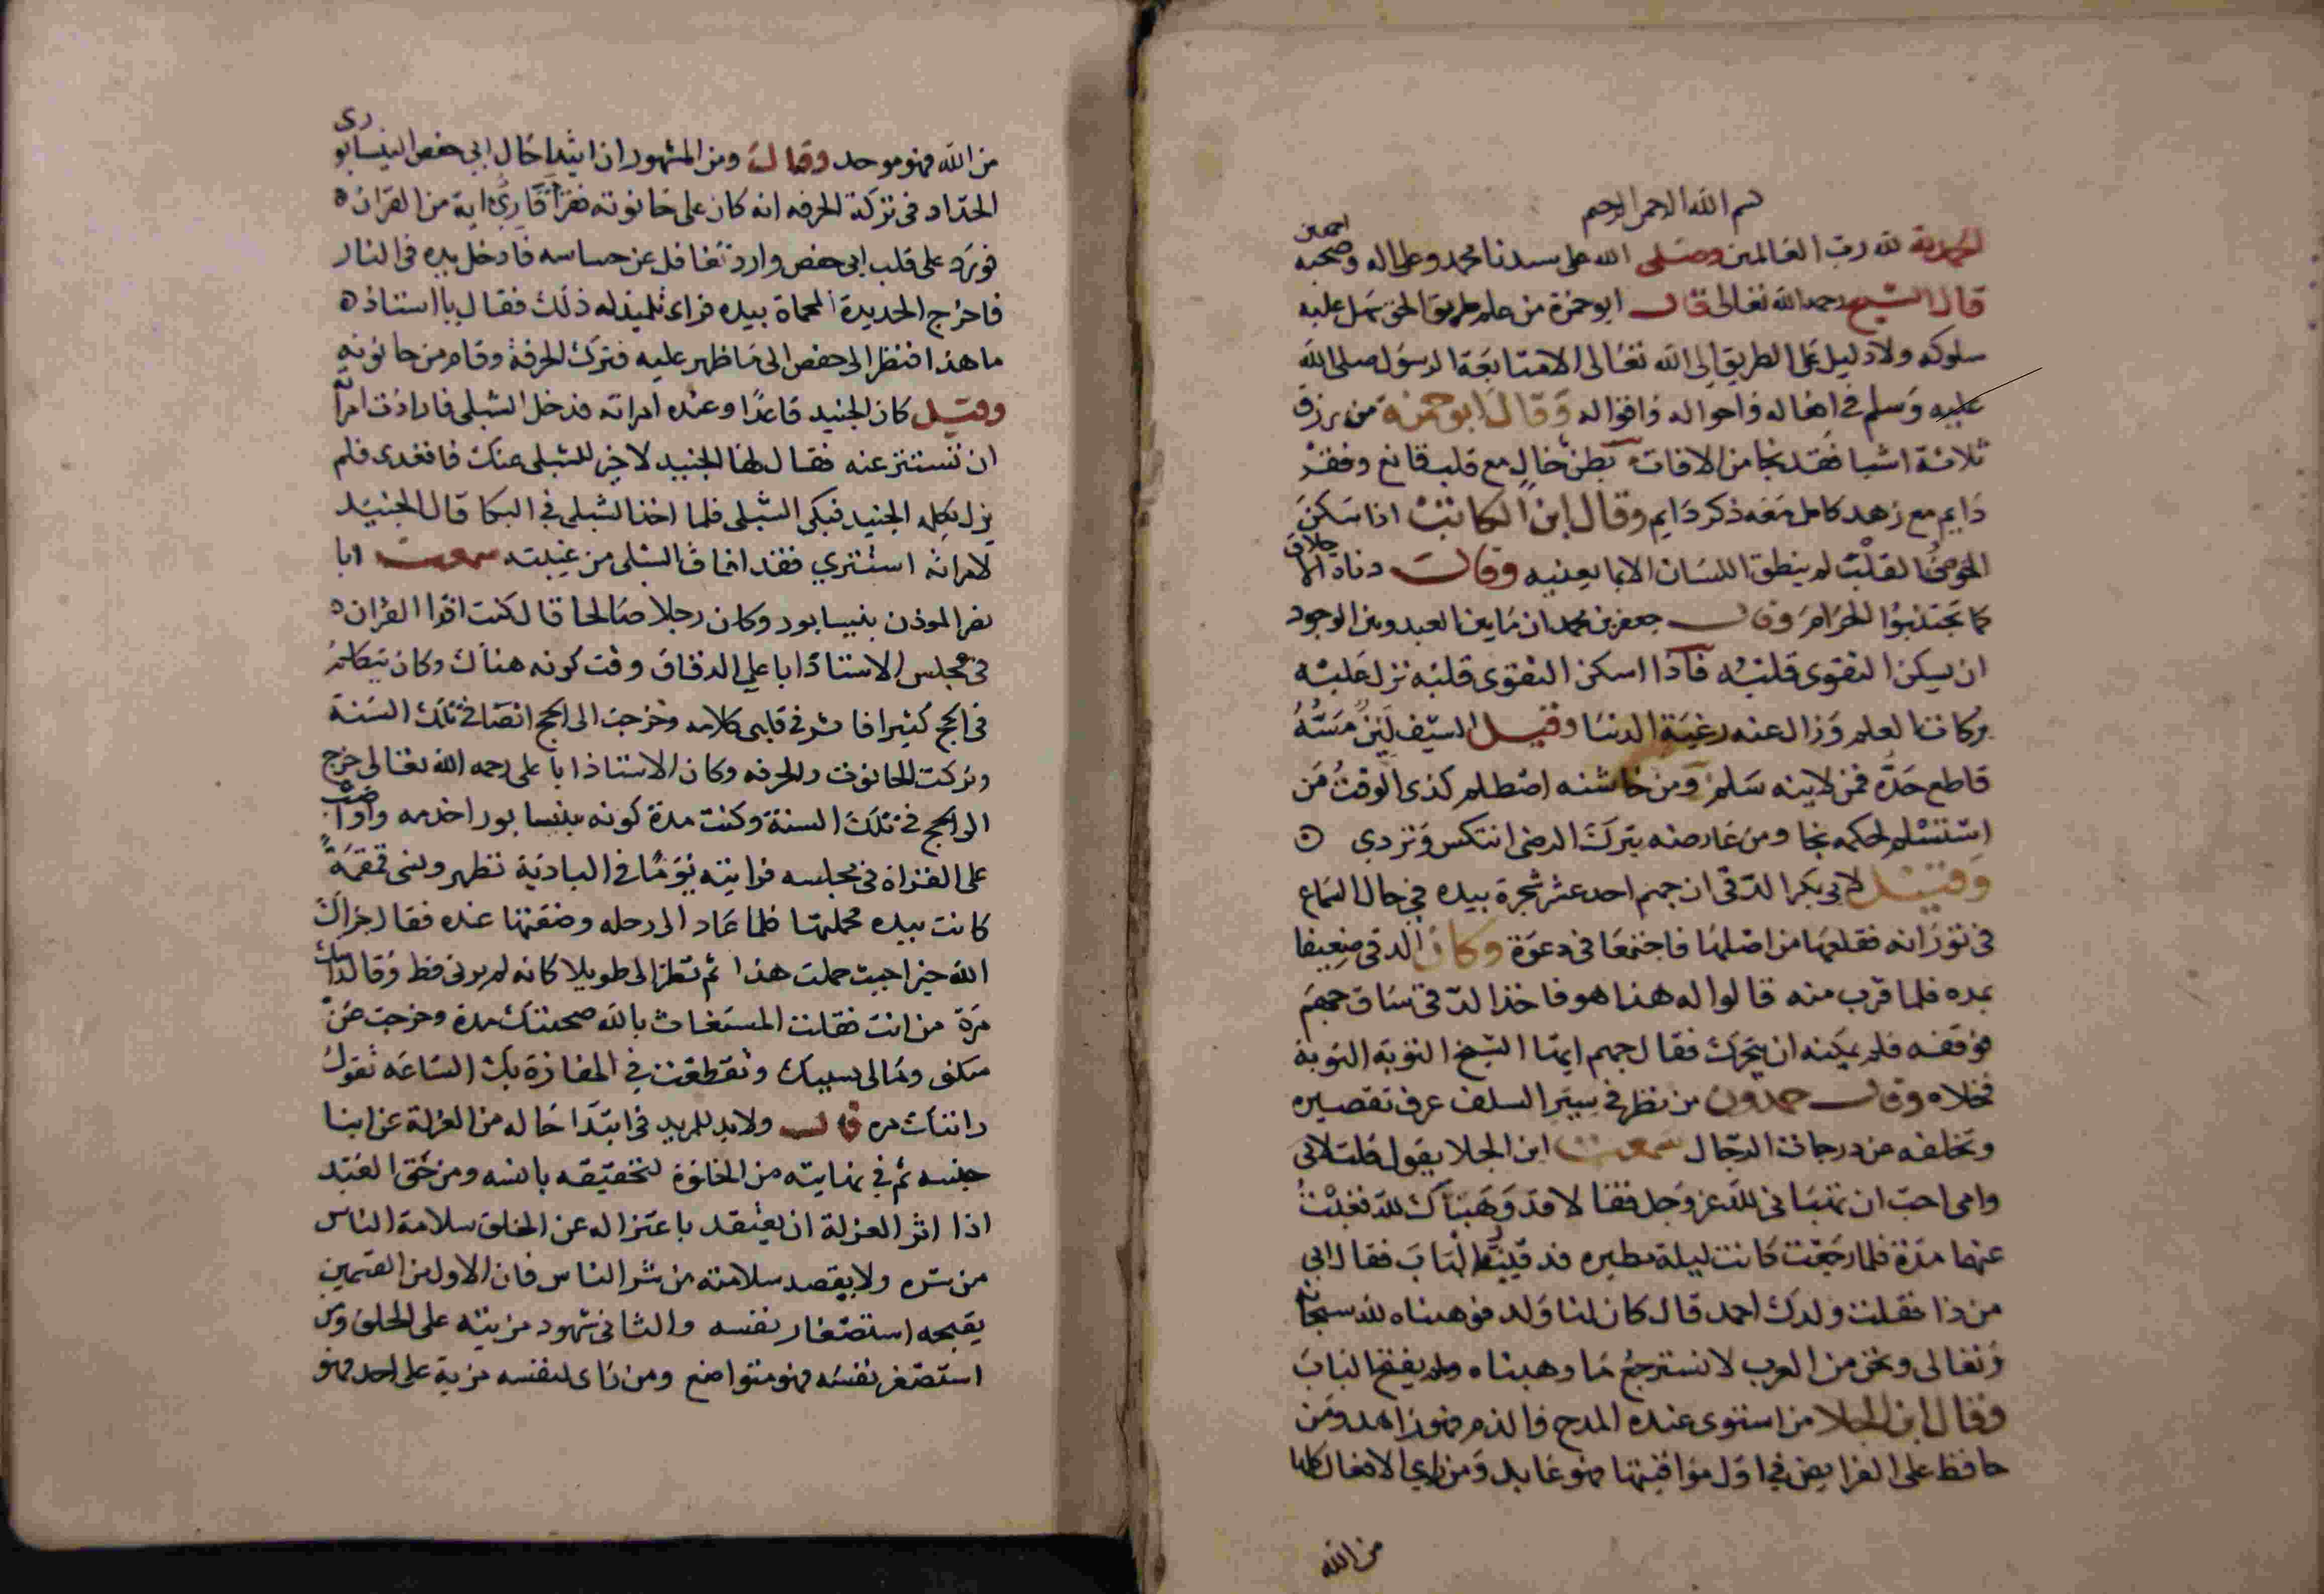 بسم الله الرحمن الرحيم
الحمد لله رب العالمين وصلى الله على سيدنا محمد وعلى اله وصحبه اجمعين
قال الشيخ رحمه الله تعالى قال ابو حمزة من علم طريق الحق سهل عليه
سلوكه ولا دليل على الطريق الى الله تعالى الا متابعة الرسول صلى الله
عليه وسلم في افعاله واحواله واقواله وقال ابو حمزة من رزق
ثلاثة اشيا فقد نجا من الافات بطن خال مع قلب قانع وفقر
دايم مع زهد كامل معه ذكر دايم وقال ابن الكاتب اذا سكن
الخوف القلب لم ينطق اللسان الا بما يعنيه وقال دناة الحلال
كما تجتنبوا الحرام وقال جعفر بن محمد ان ما بين العبد وبين الوجود
ان يسكن التقوى قلبه فاذا اسكن التقوى قلبه نزل عليه
بركات العلم وزال عنه رغبة الدنيا وقيل السيف لين مسه
قاطع حده فمن لاينه سلم ومن خاشنه اصطلم كذى الوقت من
استسلم لحكمه نجا ومن عارضه بترك الرضى انتكس وتردي ه
وقيل لابي بكر الدقي ان جهم احد عشر شجرة بيده في حال السماع
في ثورانه فقلعها من اصلها فاجتمعا في دعوة وكان الدقي ضعيفا
بصره فلما قرب منه قالوا له هذا هو فاخذ الدقي ساق جهم
فوقفه فلم يمكنه ان يتحرك فقال جهم ايها الشيخ التوبة التوبة
فخلاه وقال حمدون من نظر في سير السلف عرف تقصيره
وتخلفه من درجات الرجال سمعت ابن الجلا يقول قلت لابى
وامى احب ان تهباني لله عز وجل فقالا قد وهبناك لله فغبت
عنهما مدة فلما رجعت كانت ليلة مطيره فدقيت الباب فقال ابي
من ذا فقلت ولدك احمد قال كان لنا ولد فوهبناه لله سبحانه
وتعالى ونحن من العرب لا نسترجع ما وهبناه ولم يفتح الباب
وقال ابن الجلا من استوى عنده المدح والذم فهو زاهد ومن
حافظ على الفرايض في اول مواقيتها فهو عابد ومن راي الافعال كلها
من الله
من الله فهو موحد وقال ومن المشهور ان ابتدا حال ابي حفص النيسابورى
الحداد في تركة الحرفه انه كان على حانوته فقرا قاري اية من القران ه
فورد على قلب ابي حفص وارد تغافل عن حساسه فادخل يده في النار
فاخرج الحديدة المحماة بيده فراى تلميذ له ذلك فقال يا استاذ ه
ما هذا فنظر الى حفص الى ما ظهر عليه فترك الحرفة وقام من حانوته
وقيل كان الجنيد قاعدا وعنده امراته فدخل الشبلى فارادت امراته
ان تستتر عنه فقال لها الجنيد لا خبر للشبلى عنك فاقعدى فلم
يزل يكلم الجنيد فبكى الشبلى فلما اخذ الشبلى في البكا قال الجنيد
لامراته استتري فقد افاق الشبلى من غيبته سمعت ابا
نصر الموذن بنيسابور وكان رجلا صالحا قال كنت اقرا القران ه
في مجلس الاستاذ ابا علي الدقاق وقت كونه هناك وكان يتكلم
في الحج كثيرا فاثر في قلبى كلامه وخرجت الى الحج ايضا في تلك السنة
وتركت الحانوت والحرفه وكان الاستاذ ابا على رحمه الله تعالى خرج
الى الحج في تلك السنة وكنت مدة كونه بنيسابور اخدمه واواضب
على القراة في مجلسه فرايته يوما في البادية تطهر ونسى قمقمة
كانت بيده فحملتها فلما عاد الى رحله وضعتها عنده فقال جزاك
الله خيرا حيث حملت هذا ثم نظر الى طويلا كانه لم يرنى قط وقال رايتك
مرة من انت فقلت المستغاث بالله صحبتك مدة وخرجت عن
مسكنى ومالى بسببك وتقطعت في المفازة بك الساعه تقول
رايتك مره قال ولابد للمريد في ابتدا حاله من العزلة عن ابنا
جنسه ثم في نهايته من الخلوة لتحقيقه بانسه ومن حق العبد
اذا اثر العزلة ان يعتقد باعتزاله عن الخلق سلامة الناس
من شره ولا يقصد سلامته من شر الناس فان الاول من القسمين
يقيجه استصغار نفسه والثاني شهود مزيته على الخلق ومن
استصغر نفسه فهو متواضع ومن راى لنفسه مزية على احد فهو